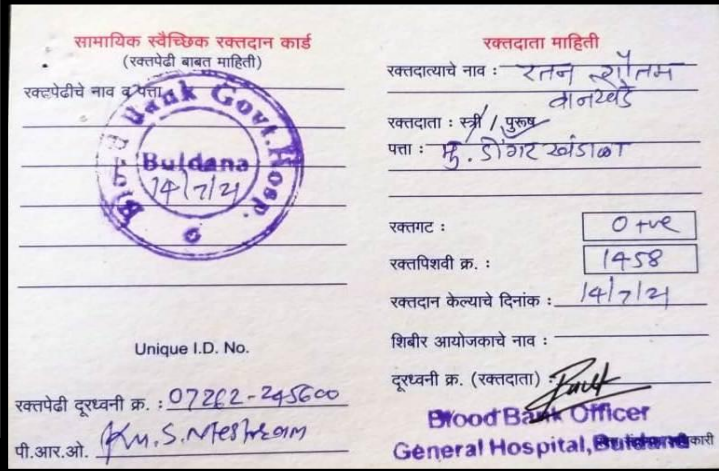 सामायिक स्वैच्छिक रक्तदान कार्ड
(रक्तपेढी बाबत माहिती)
रक्तपेढीचे नाव व पत्ता
Blood Bank Govt. Hosp.
Buldana
14/7/21
Unique I.D. No.
रक्तपेढी दूरध्वनी क्र. : 07262-245600
पी.आर.ओ. Ku.S.Meshram
रक्तदाता माहिती
रक्तदात्याचे नाव : रतन गौतम
वानखडे
रक्तदाता : स्त्री / पुरूष
पत्ता : मु. डोंगर खंडाळा
रक्तगट : O +ve
रक्तपिशवी क्र. : 1458
रक्तदान केल्याचे दिनांक : 14/7/21
शिबीर आयोजकाचे नाव :
दूरध्वनी क्र. (रक्तदाता) :
Blood Bank Officer
General Hospital, Buldana